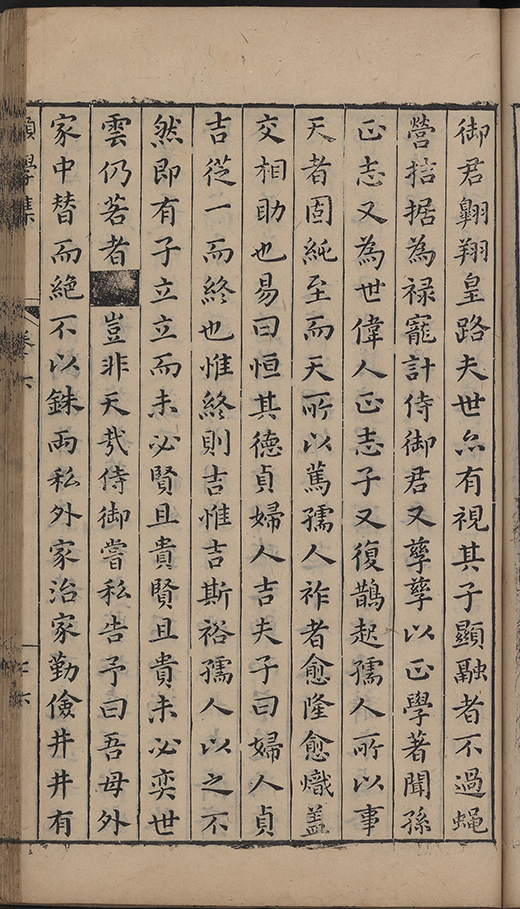 御君翺翔皇路夫世亦有視其子顯融者不過蠅
營拮据為祿寵計侍御君又孳孳以正學著聞孫
正志又為世偉人正志子又復鵲起孺人所以事
天者固純至而天所以篤孺人祚者愈隆愈熾蓋
交相助也易曰恒其德貞婦人吉夫子曰婦人貞
吉從一而終也惟終則吉惟吉斯裕孺人以之不
然即有子立立而未必賢且貴賢且貴未必奕世
雲仍若者豈非天㢤侍御嘗私告予曰吾母外
家中替而絕不以銖兩私外家治家勤儉井井有
學集
卷六